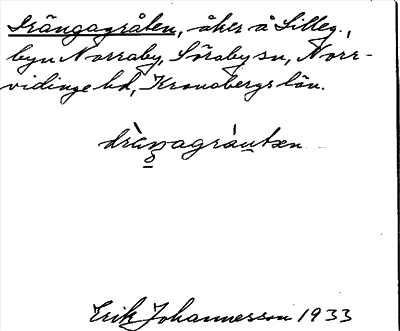 Drängagråten, åker å Lilleg.,
byn Norraby, Söraby sn, Norr-
vidinge hd, Kronobergs län.
Erik Johannesson 1933